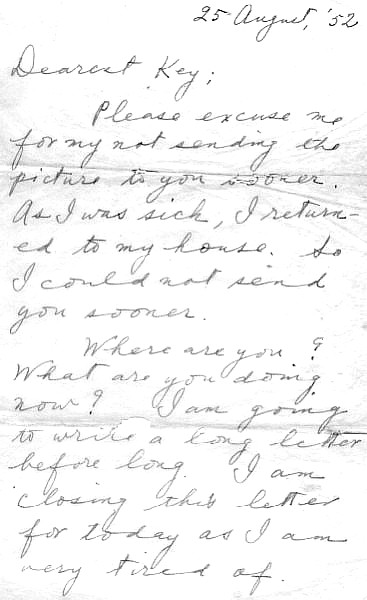 25 August, '52
Dearest Key;
Please excuse me
for my not sending the
picture to you sooner.
As I was sick, I return-
ed to my house. So
I could not send
you sooner.
Where are you?
What are you doing
now? I am going
to write a long letter
before long. I am
closing this letter
for today as I am
very tired of.